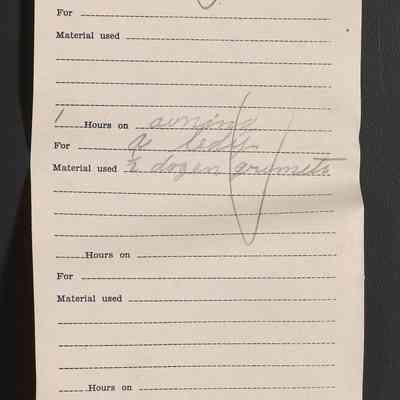 For
Material used
1 Hours on awning
For a lady
Material used ½ dozen grumets
Hours on
For
Material used
Hours on